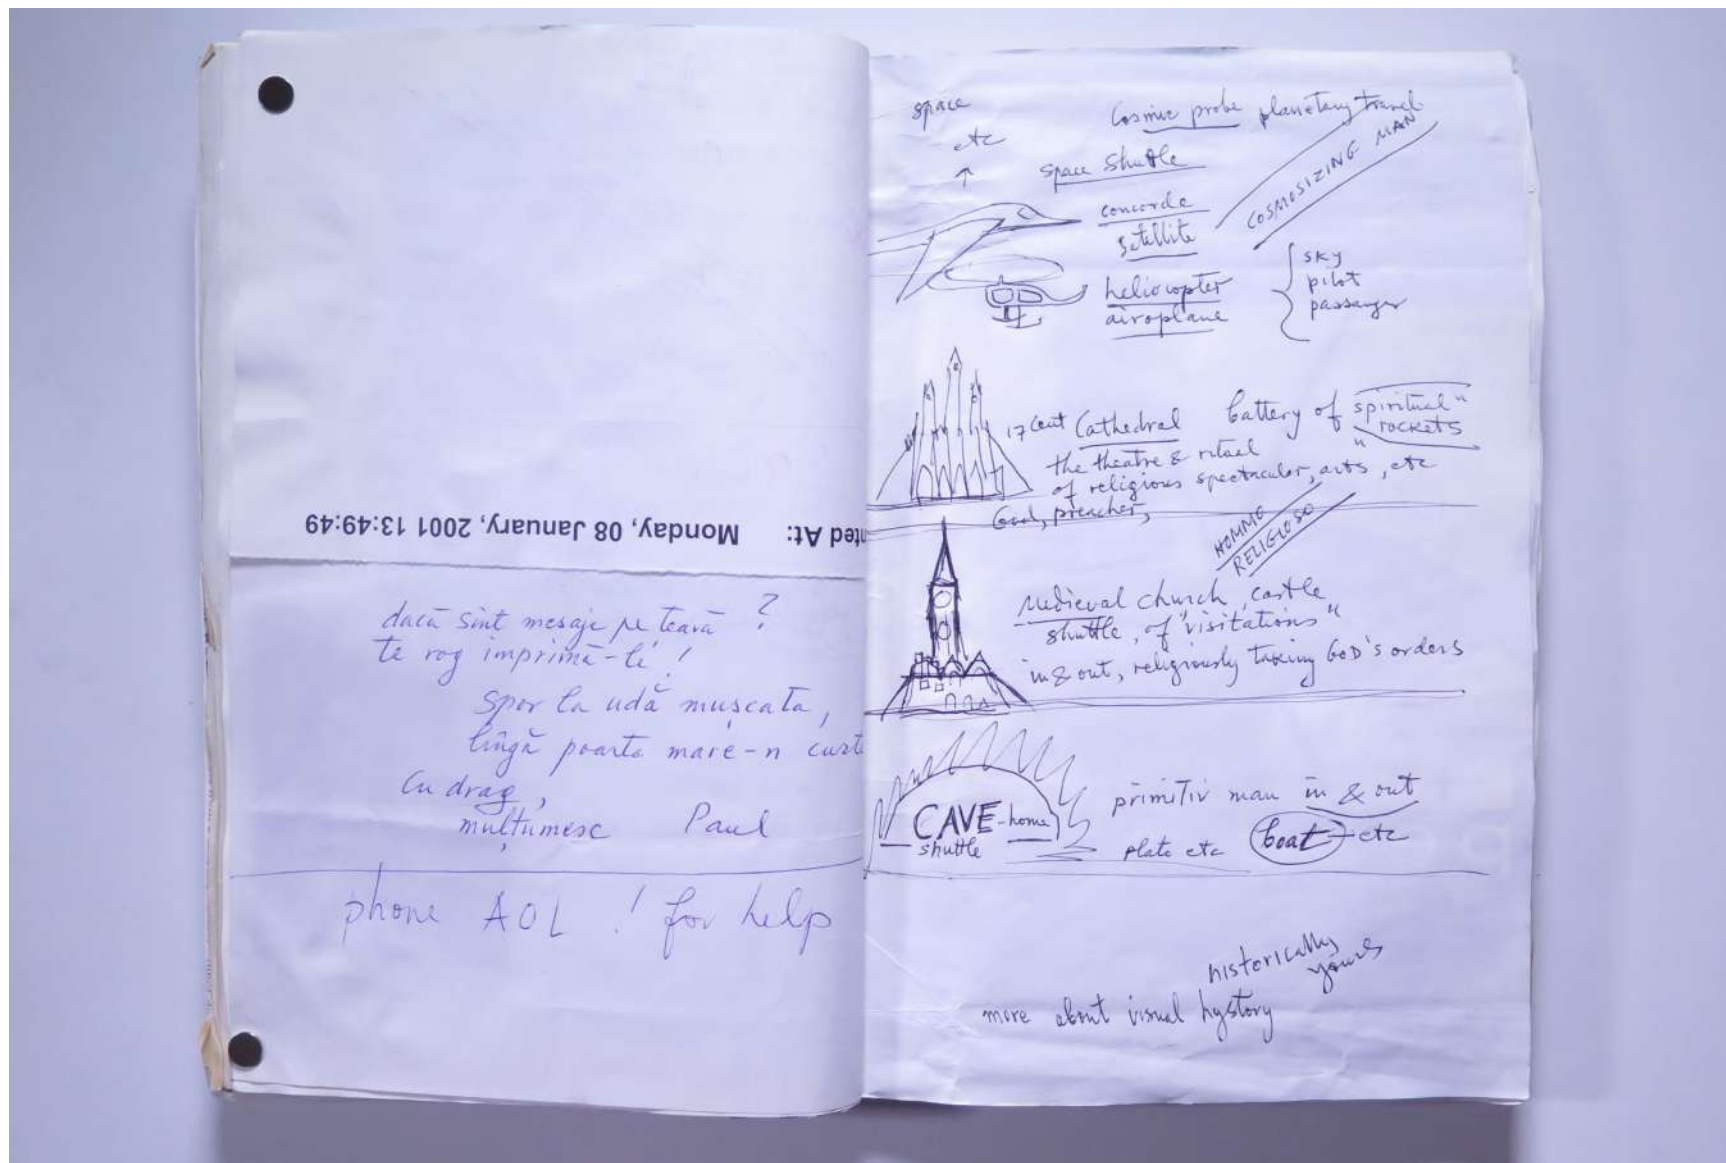 nted At: Monday, 08 January, 2001 13:49:49
dacă sînt mesaje pe teavă ?
te rog imprimă-le !
Spor la udă mușcata,
lîngă poarta mare-n curte
Cu drag,
mulțumesc Paul
phone AOL ! for help
space
etc
↑
Cosmic probe planetary travel
space shuttle
concorde
satellite
COSMOSIZING MAN
heliocopter
airoplane
sky
pilot
passanger
17 cent Cathedral battery of spiritual "
rockets
"
the theatre & ritual
of religious spectacular, arts, etc
God, preacher,
HOMMO
RELIGIOSO
medieval church, castle
shuttle, of "visitations"
in & out, religiously taking GOD'S orders
CAVE - home
shuttle
primitiv man in & out
plate etc boat etc
historically
yours
more about visual hystory